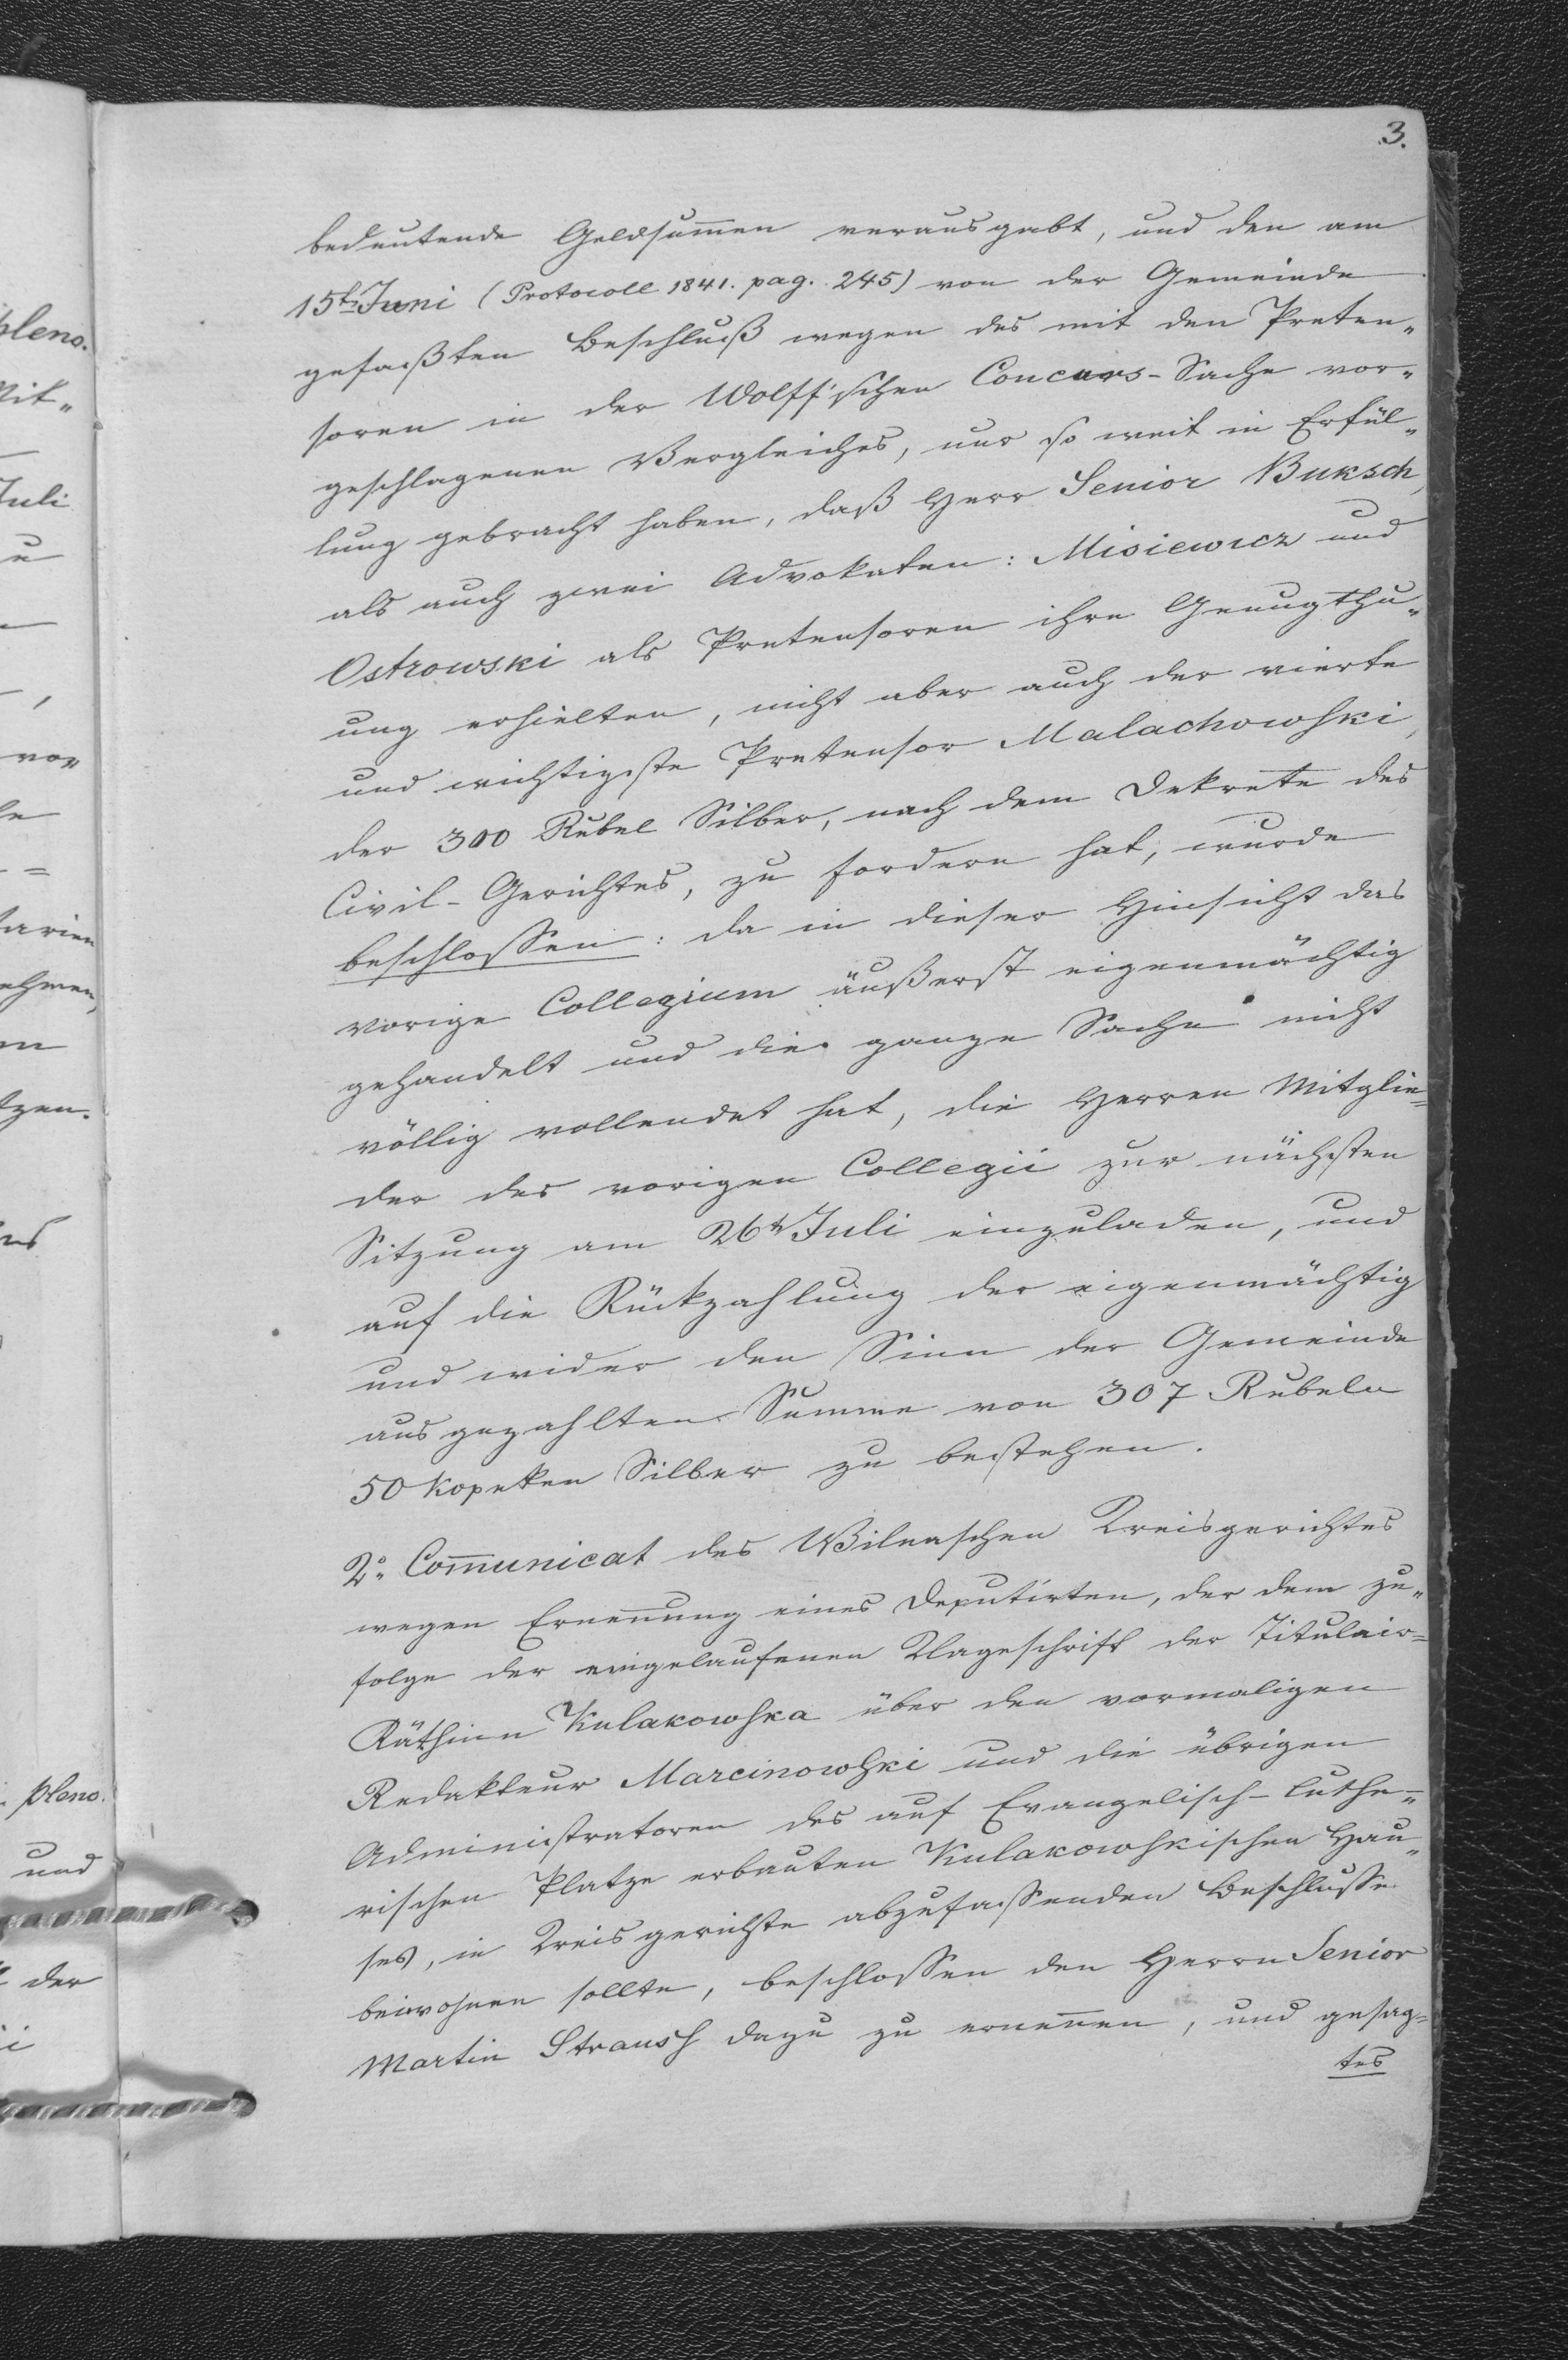 3.
bedeutende Geldsum̄en verausgabt, und den am
15ten Juni (Protocoll 1841. pag. 245) von der Gemeinde
gefaßten Beschluß wegen des mit den Preten„
soren in der Wolff'schen Concurs-Sache vor„
geschlagenen Vergleiches, nur so weit in Erfül„
lung gebracht haben, daß Herr Senior Buksch,
als auch zwei Advokaten: Misiewicz und
Ostrowski als Pretensoren ihre Genugthu„
ung erhielten, nicht aber auch der vierte
und wichtigste Pretensor Malachowski,
der 300 Rubel Silber, nach dem Dekrete des
Civil-Gerichtes, zu fordern hat, wurde
beschlossen: da in dieser Hinsicht das
vorige Collegium äußerst eigenmächtig
gehandelt und die ganze Sache nicht
völlig vollendet hat, die Herren Mitglie=
der des vorigen Collegii zur nächsten
Sitzung am 26t Juli einzuladen, und
auf die Rückzahlung der eigenmächtig
und wider den Sinn der Gemeinde
ausgezahlten Summe von 307 Rubeln
50 Kopeken Silber zu bestehen.
2o Com̄unicat des Wilnaschen Kreisgerichtes
wegen Ernen̄ung eines Deputirten, der dem zu„
folge der eingelaufenen Klageschrift der Titulair=
Räthinn Kulakowska über den vormaligen
Redakteur Marcinowski und die übrigen
Administratoren des auf Evangelisch-Luthe=
rischen Platze erbauten Kulakowskischen Hau„
ses, in Kreisgerichte abzufassenden Beschlusse
beiwohnen sollte, beschlossen den Herrn Senior
Martin Strauss dazu zu ernen̄en, und gesag=
tes
pleno.
Mit„
Juli
u
vor
tarien
ehmen,
tzen.
pleno.
und
der